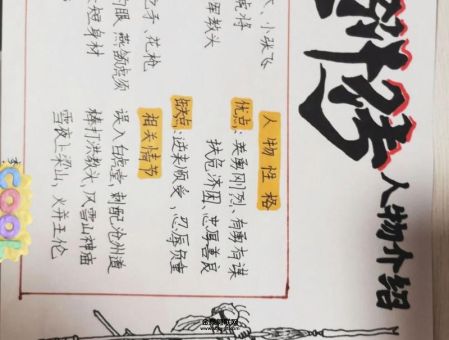 人物介绍
、小张飞
虎将
军教头
之矛、花枪
眼 燕颔虎须
短身材
人物性格
优点:英勇刚烈、有勇有谋
扶危济困、忠厚善良
缺点:逆来顺受、忍辱负重
相关情节
误入白虎堂,刺配沧州道
棒打洪教头,风雪山神庙
雪夜上梁山,火并王伦
COOL